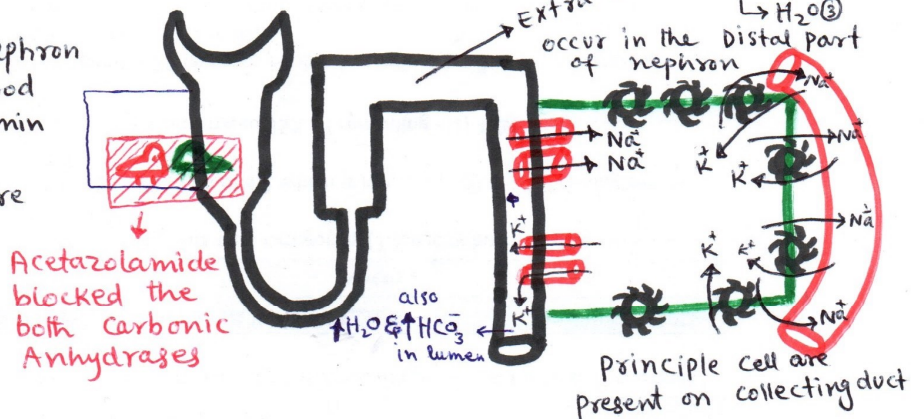 ephron
od
min
re
Acetazolamide
blocked the
both Carbonic
Anhydrases
Extra
↳ H₂O③
occur in the Distal part
of nephron
Na⁺
Na⁺
Na⁺
Na⁺
K⁺
K⁺
Na⁺
K⁺
K⁺
Na⁺
K⁺
K⁺
also
↑H₂O & ↑HCO₃⁻
in lumen
Principle cell are
present on collecting duct